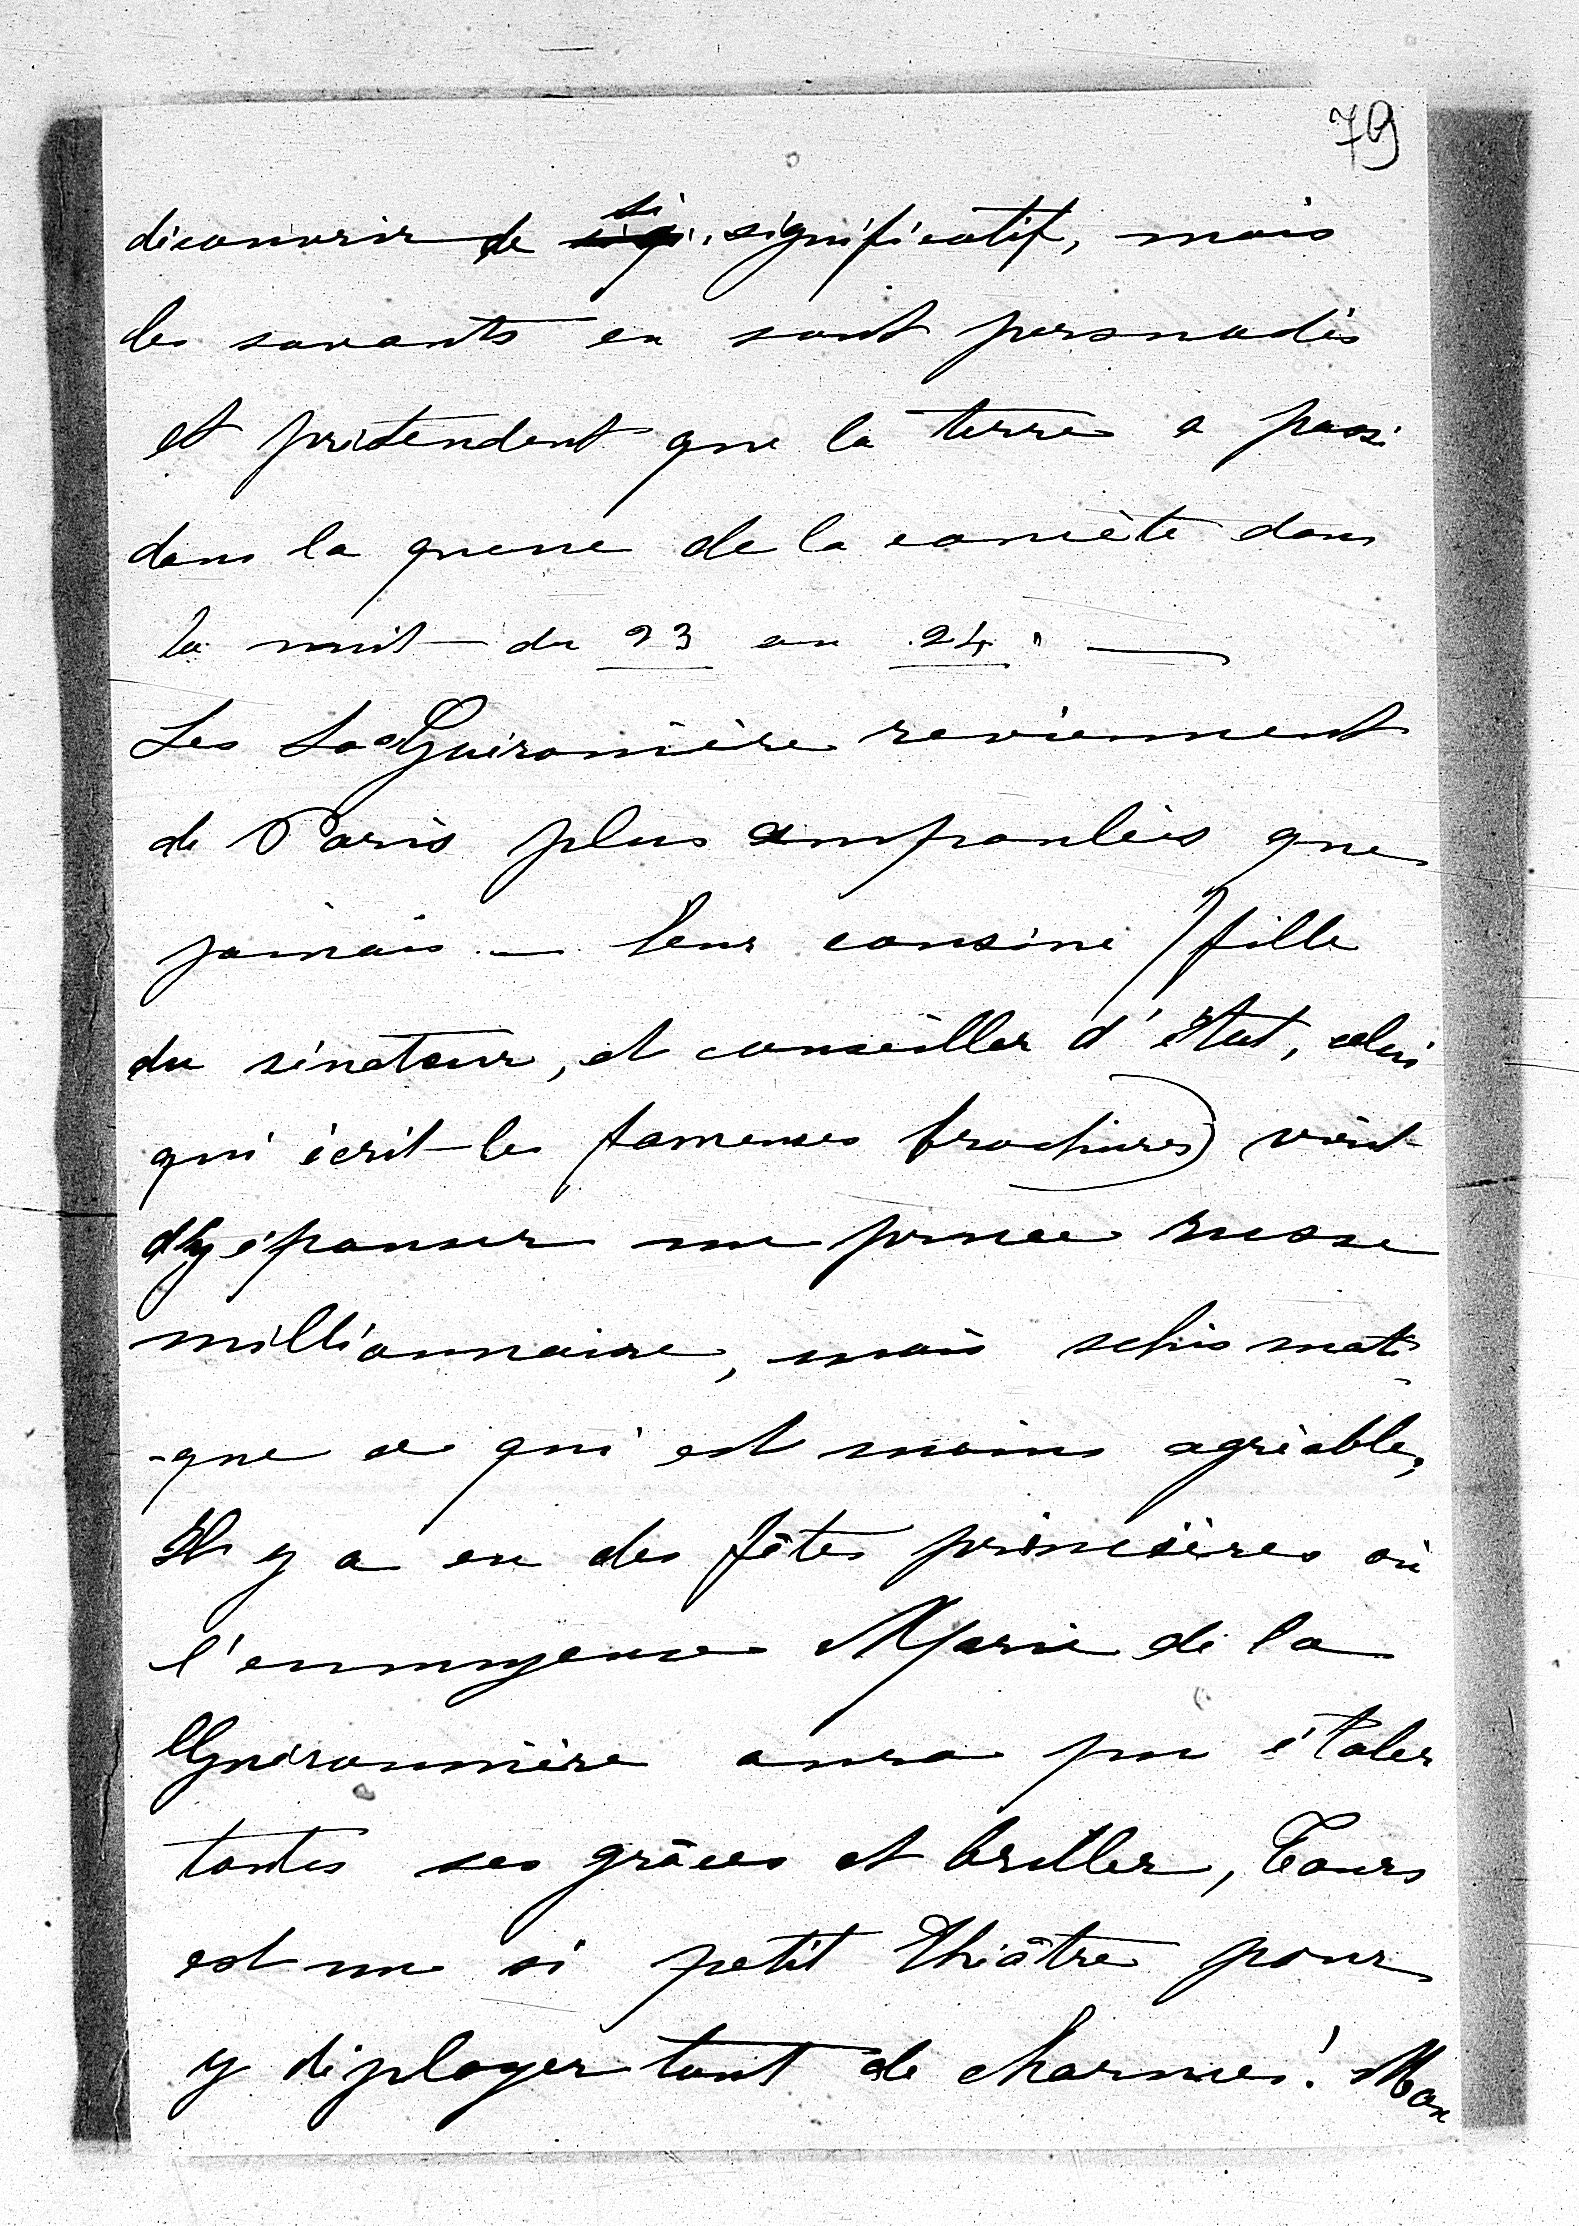 79
découvrir de si significatif, mais
les savants en sont persuadés
et prétendent que la terre a passé
dans la queue de la comète dans
la nuit du 23 au 24. —
Les La Guéronnière reviennent
de Paris plus ampoulées que
jamais — leur cousine (fille
du sénateur, et conseiller d'Etat, celui
qui écrit les fameuses brochures) vient
d'y épouser un prince russe
millionnaire, mais schismati-
-que ce qui est moins agréable,
Il y a eu des fêtes princières où
l'ennuyeuse Marie de la
Guéronnière aura pu étaler
toutes ses grâces et briller, Tours
est un si petit théâtre pour
y déployer tant de charmes! Mon